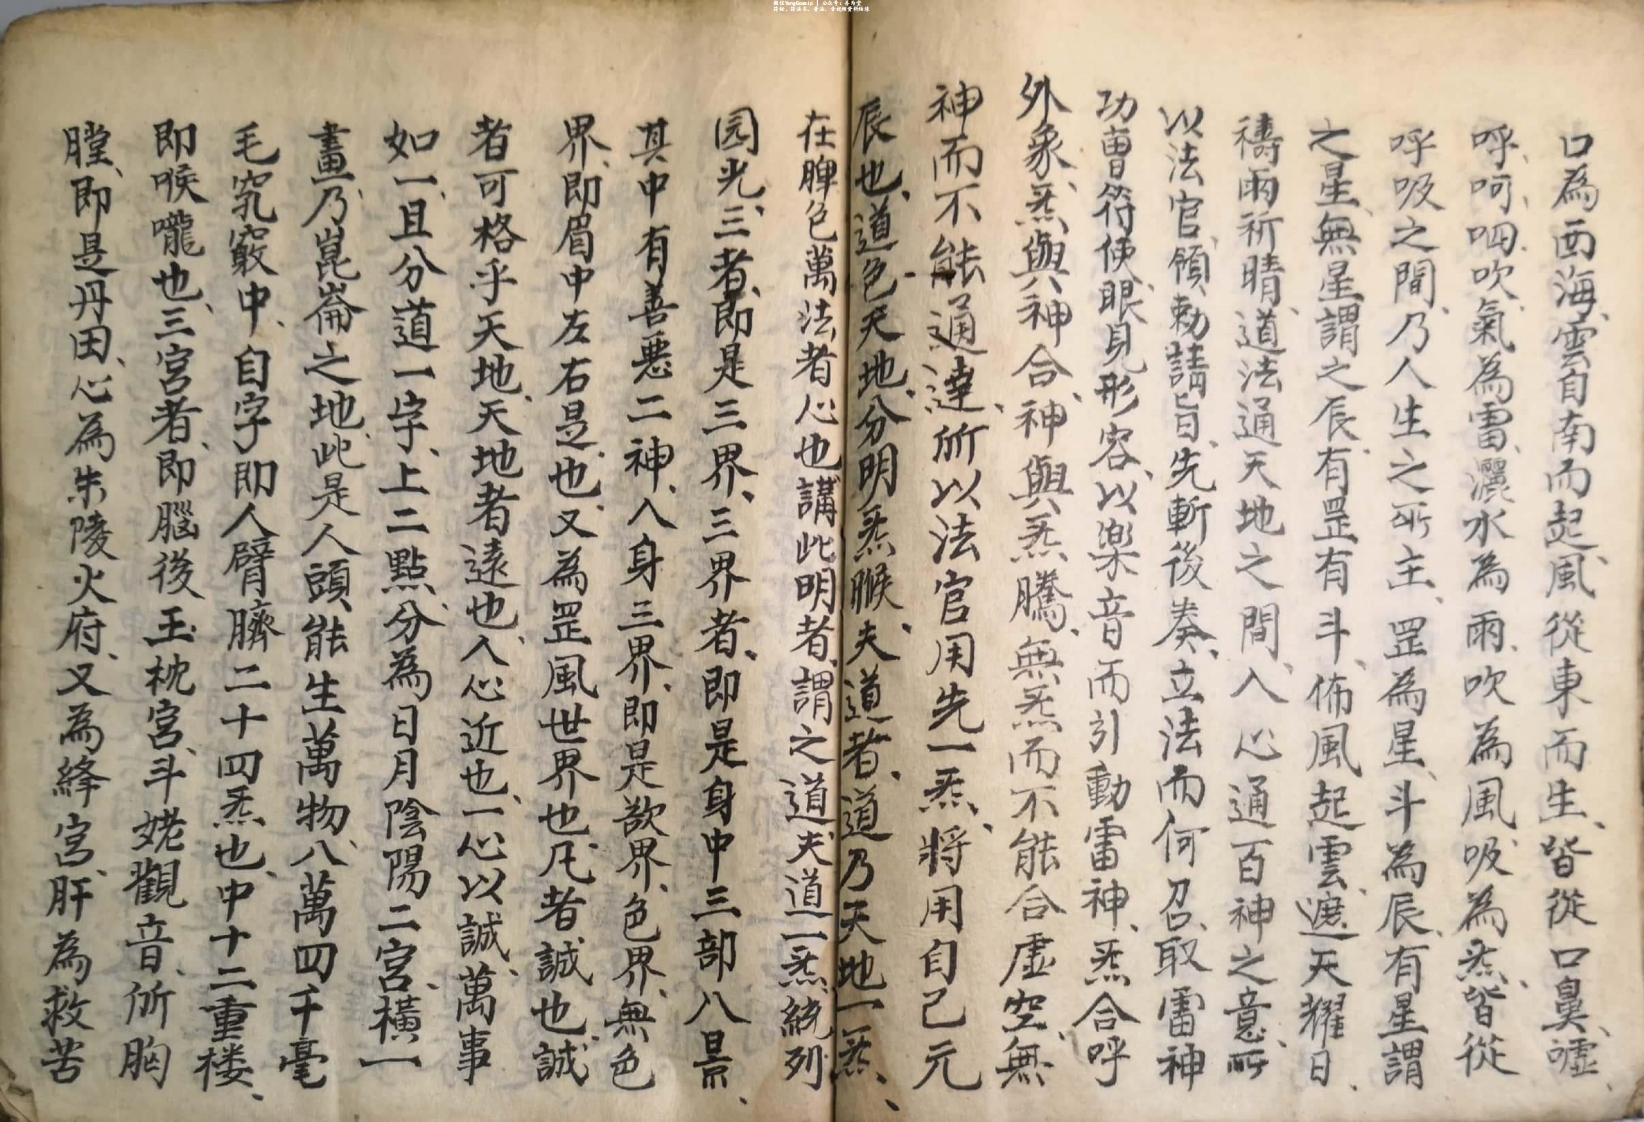 口為西海、雲自南而起、風從東而生、皆從口鼻、噓
呼、呵、呬、吹、氣為雷、灑水為雨、吹為風、吸為炁、皆從
呼吸之間、乃人生之所主、罡為星、斗為辰、有星謂
之星、無星謂之辰、有罡有斗、佈風起雲、遮天耀日、
禱雨祈晴、道法通天地之間、人心通百神之意、所
以法官領勅請旨、先斬後奏、立法而何召、取雷神
功曹符使、眼見形容、以樂音而引動雷神、炁合呼
外象、炁與神合、神與炁騰、無炁而不能合虛空、無
神而不能通達、所以法官用先一炁、將用自己元
辰也、道色天地、分明炁睺、夫道者、道乃天地一炁、
在脾色萬法者心也、講此明者、謂之道、夫道一炁統列
园光、三者、即是三界、三界者、即是身中三部八景、
其中有善惡二神、入身三界、即是欲界、色界、無色
界、即眉中左右是也、又為罡風世界也、凡者誠也、誠
者可格乎天地、天地者遠也、人心近也、一心以誠、萬事
如一、且分道一字、上二點、分為日月陰陽二宮、橫一
畫、乃崑崙之地、此是人頭能生萬物、八萬四千毫
毛竅中、自字即人臂臍二十四炁也、中十二重楼、
即喉嚨也、三宮者、即腦後玉枕宮、斗姥觀音、所胸
膛、即是丹田、心為朱陵火府、又為絳宮、肝為救苦